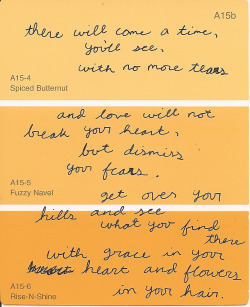 A15b
there will come a time,
you'll see,
with no more tears
A15-4
Spiced Butternut
and love will not
break your heart,
but dismiss
your fears.
A15-5
Fuzzy Navel
get over your
hills and see
what you find
there
with grace in your
heart and flowers
A15-6
Rise-N-Shine
in your hair.